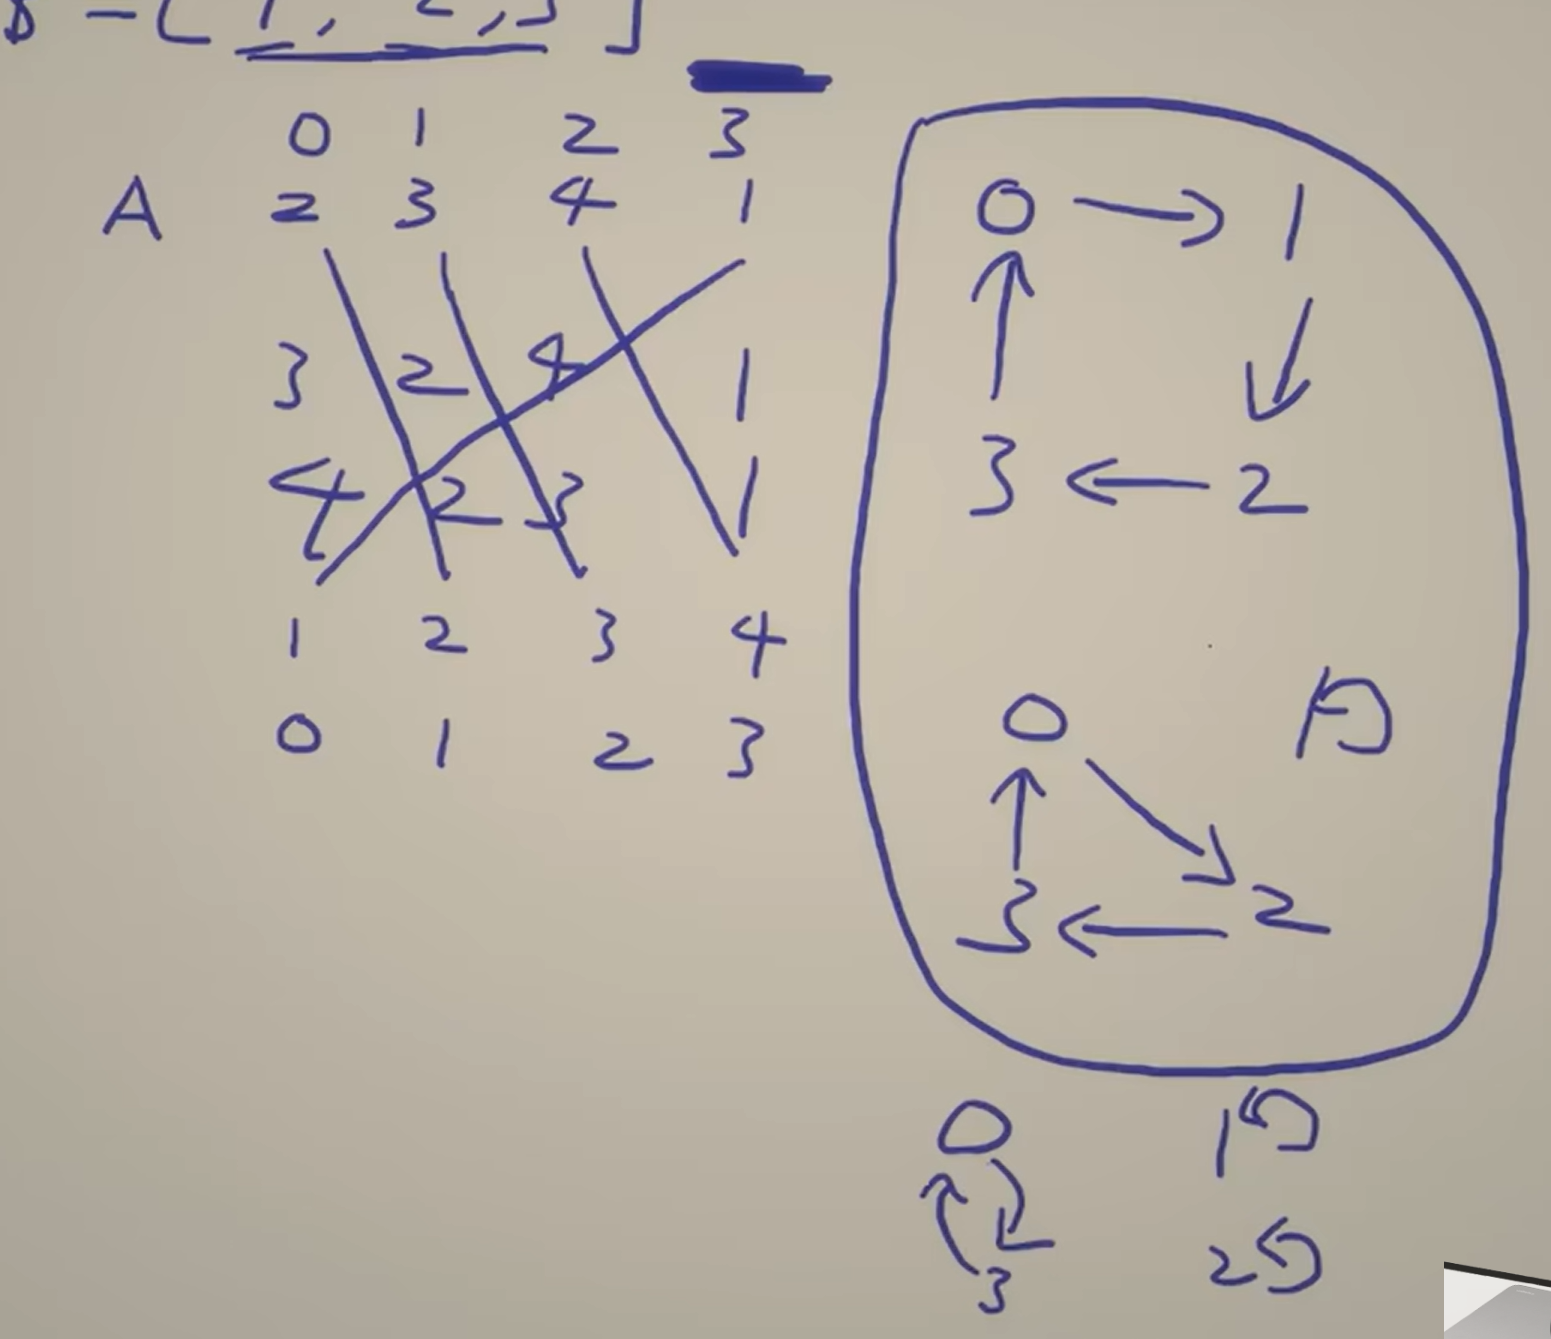 0 1 2 3
A 2 3 4 1
3 2 4 1
4 2 3 1
1 2 3 4
0 1 2 3
0 → 1
3 ← 2
0 1
3 ← 2
0 1
3 2